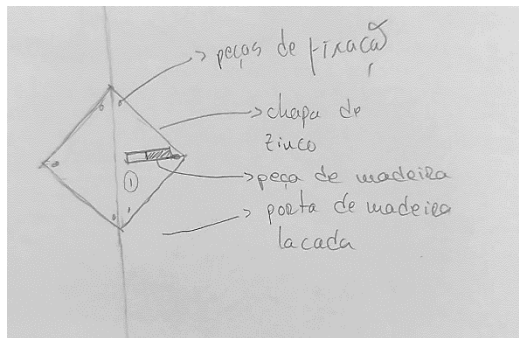 peças de fixação
chapa de
zinco
peça de madeira
1
porta de madeira
lacada